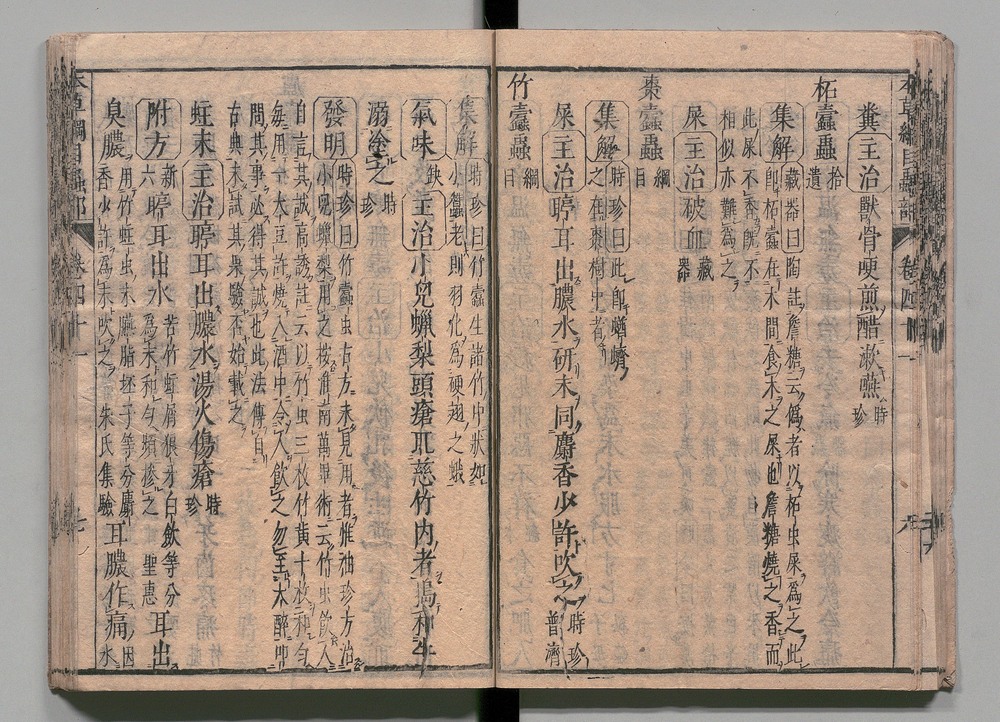 糞主治獸骨哽煎醋漱嚥時珍
柘蠹蟲拾遺
集解藏器曰陶註詹糖云僞者以柘虫屎爲之此
即柘蠹在木間食木之屎也詹糖燒之香而
此屎不香既不
相似亦難爲之
屎主治破血藏器
棗蠹蟲綱目
集解時珍曰此即蝤蠐
之在棗樹中者
屎主治聤耳出膿水研末同麝香少許吹之時珍普濟
竹蠹蟲綱目
集解時珍曰竹蠹生諸竹中狀如
小蠶老則羽化爲硬翅之蛾
氣味缺主治小兒蠟梨頭瘡取慈竹內者搗和牛
溺塗之時珍
發明時珍曰竹蠹虫古方未見用者惟袖珍方治
小兒蠟梨用之按淮南萬畢術云竹虫飲人
自言其誠高誘註云以竹虫三枚竹黃十枚和勻
每用一大豆許燒入酒中令人飲之勿至大醉叩
問其事必得其誠也此法傳自
古典未試其果驗否姑載之
蛀末主治聤耳出膿水湯火傷瘡時珍
附方新六聤耳出水苦竹蛀屑狼牙白歛等分
爲末和勻頻摻之聖惠耳出
臭膿用竹蛀虫末臙脂坯子等分麝
香少許爲末吹之朱氏集驗耳膿作痛因水